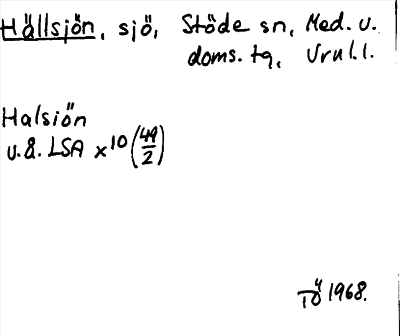 Hällsjön, sjö, Stöde sn, Med. v.
doms. tg,
Halsiön
u.å. LSA x10 (49/2)
1968.